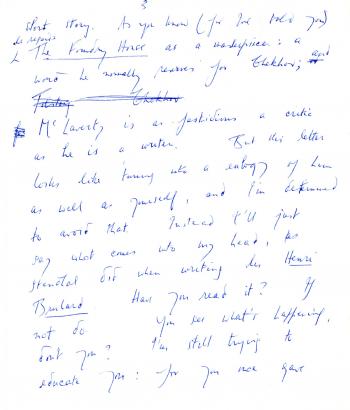 3
short story. As you know (for I've told you)
he regards
The Foundry House as a masterpiece: a
word he normally reserves for Chekhov; and
Chekhov
McLaverty is as fastidious a critic
as he is a writer. But this letter
looks like turning into a eulogy of him
as well as yourself, and I'm determined
to avoid that. Instead I'll just
say what comes into my head, as
Stendhal did when writing his Henri
Brulard Have you read it? If
not do. You see what's happening,
don't you? I'm still trying to
educate you: for you once gave